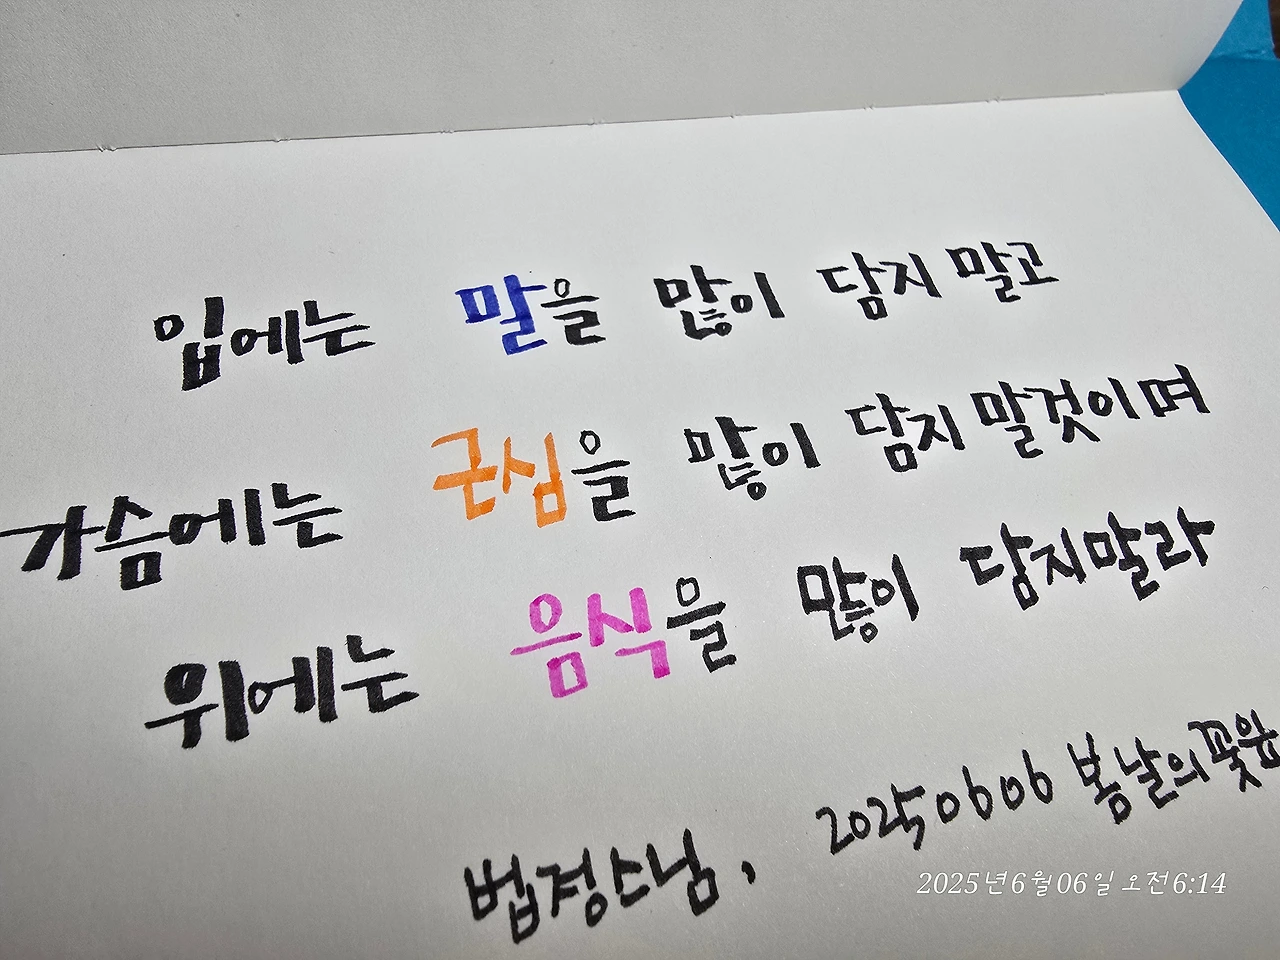 입에는 말을 많이 담지 말고
가슴에는 근심을 많이 담지 말것이며
위에는 음식을 많이 담지말라
법정스님, 20250606 봄날의꽃잎
2025년6월06일 오전6:14